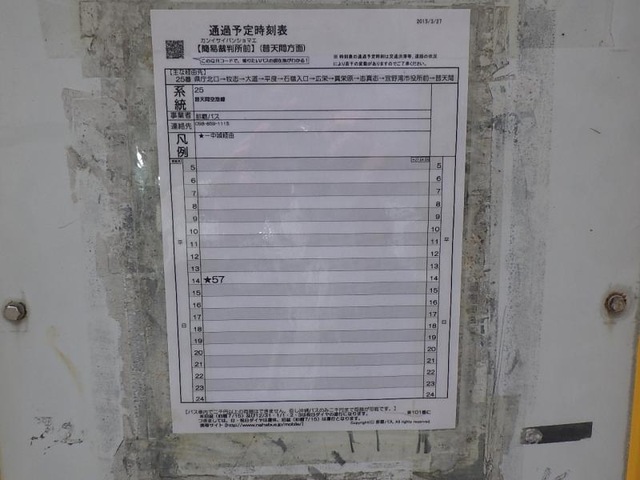 通過予定時刻表
2013/3/27
カンイサイバンショマエ
【簡易裁判所前】(普天間方面)
このQRコードで、乗りたいバスの現在地がわかる!
※ 時刻表の通過予定時刻は交通渋滞等、道路の状況
により若干の変動がありますのでご了承ください。
【主な経由先】
25番 県庁北口→牧志→大道→平良→石嶺入口→広栄→真栄原→志真志→宜野湾市役所前→普天間
系統
25
普天間空港線
事業者 那覇バス
連絡先 098-859-1115
凡例
★一中城経由
5 5
6 6
7 7
8 8
9 9
10 10
11 11
12 12
13 13
14 ★57 14
15 15
16 16
17 17
18 18
19 19
20 20
21 21
22 22
23 23
24 24
第101番に
携帯サイト [http://www.nahabus.jp/mobile/]
Copyright(C) 那覇バス, All rights reserved.